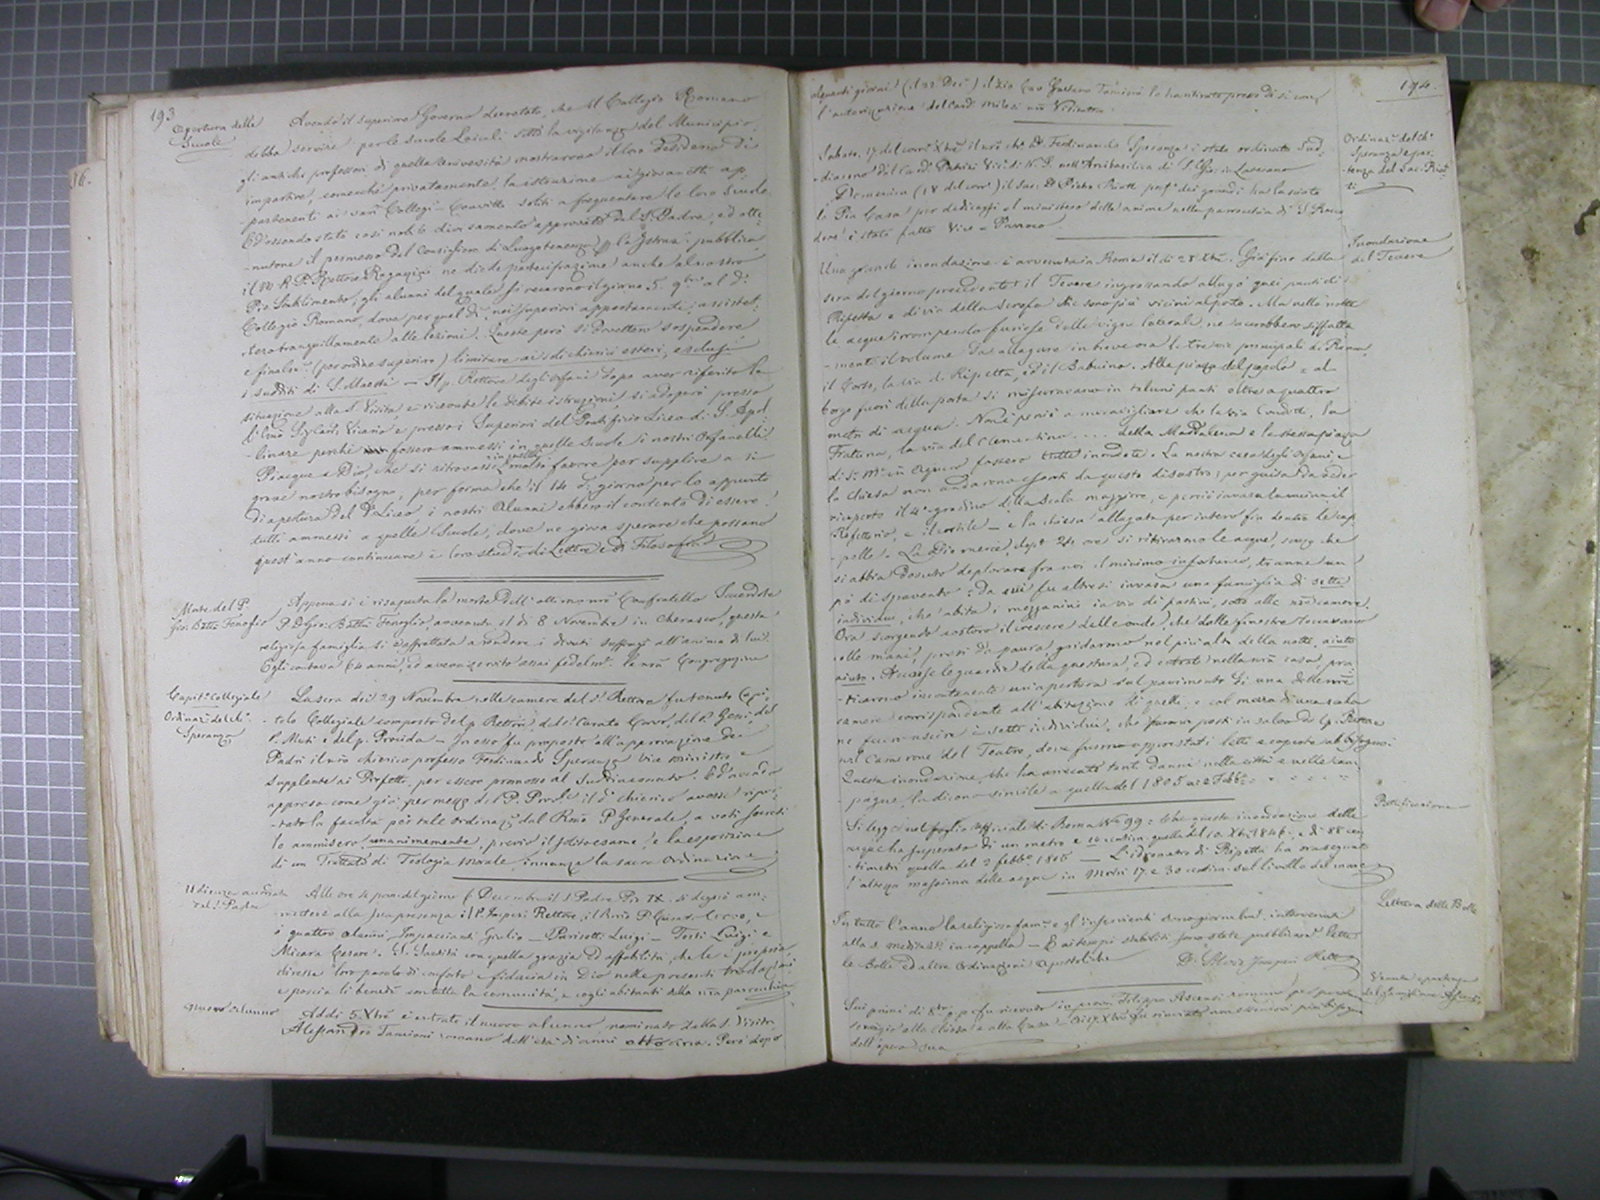 193
Apertura delle
Scuole
Avendo il superiore Governo decretato, che il Collegio Romano
debba servire per le Scuole Laicali sotto la vigilanza del Municipio,
gli antichi professori di quella Università mostrarono il loro desiderio di
impartire, comecchè privatamente, la istruzione ai giovanetti ap-
partenenti ai varî Collegi-Convitti soliti a frequentare le loro Scuole.
Ed essendo stato così nobile divisamento approvato dal S. Padre, ed otte-
nutone il permesso del Consigliere di Luogotenenza per la Istruz. pubblica
il M. R. P. Rettore Ragazzini ne diede partecipazione anche al nostro
Pio Stabilimento, gli alunni del quale si recarono il giorno 5. 9bre al d.
Collegio Romano, dove per quel dì, noi Superiori appostamente, assistet-
tero tranquillamente alle lezioni. Queste però si dovettero sospendere
e finalm. (per ordine superiore) limitare ai soli chierici esteri, esclusi
i sudditi di S. Maestà — Il p. Rettore degli Orfani dopo aver riferito la
situazione alla S. Visita e ricevute le debite istruzioni si adoperò presso
l'Emo Sig. Card. Vicario e presso i Superiori del Pontificio Liceo di S. Apol-
linare perchè fossero ammessi in quelle Scuole i nostri Orfanelli.
Piacque a Dio, che si ritrovasse in quelli molto favore per supplire a sì
grave nostro bisogno, per forma che il 14 d. giorno per lo appunto
di apertura del d. Liceo i nostri Alunni ebbero il contento di essere
tutti ammessi a quelle Scuole, dove ne giova sperare che possano
quest'anno continuare i loro studi di Lettere e di Filosofia.
Morte del P.
Gio: Batta Fenoglio
Appena si è risaputa la morte dell'ottimo nro Confratello Sacerdote
P. D. Gio: Batta Fenoglio, avvenuta il dì 8 Novembre in Cherasco, questa
religiosa famiglia si è affrettata a rendere i dovuti suffragi all'anima di lui.
Egli contava 64 anni, ed aveva servito assai fedelm. la nra Congregazione
Capit. Collegiale
Ordinaz. del ch.
Speranza
La sera dei 29 Novembre nelle camere del P. Rettore fu tenuto Capi-
tolo Collegiale composto del p. Rettore, del P. Curato Corvo, del P. Gessi, del
P. Muti e del p. Provida — In esso fu proposto all'approvazione dei
Padri il nro chierico professo Ferdinando Speranza Vice ministro e
supplente ai Prefetti, per essere promosso al Suddiaconato. Ed avendo
appreso come già per mezzo del P. Prov.le il d. chierico avesse ripor-
tato la facoltà per tale ordinaz. dal Rmo P. Generale, a voti secreti
lo ammisero unanimemente, previo il solito esame e la esposizione
di un Trattato di Teologia morale innanzi la sacra Ordinazione
Udienza avuta
dal S. Padre
Alle ore 4 pom. del giorno 6 Decembre il S. Padre Pio IX. si degnò am-
mettere alla sua presenza il P. Imperi Rettore, il Rmo P. Curato Corvo, e
i quattro alunni Impaccianti Giulio — Parisotti Luigi — Testi Luigi e
Micara Cesare. S. Santità con quella grazia ed affabilità, che le è propria,
diresse loro parole di conforto e fiducia in Dio nelle presenti tribolazioni
e poscia li benedì con tutta la comunità, e cogli abitanti della nra parrocchia
Nuovo alunno
Addì 5 Xbre è entrato il nuovo alunno nominato dalla S. Visita
Alessandro Tamioni romano dell'età di anni otto circa. Però dopo
194.
alquanti giorni (il 22 Dec.) il zio Cav. Gaetano Tamioni lo ha ritirato presso di sè con
l'autorizzazione del Card. Milesi nro Visitatore.
Ordinaz. del ch.
Speranza e par-
tenza del Sac. Riat-
ti
Sabato, 17 del corr. Xbre il nro ch. D. Ferdinando Speranza è stato ordinato Sud-
diacono dal Card. Patrizi Vic. di N. S. nell'Arcibasilica di S. Gio. in Laterano
Domenica (18 del corr.) il Sac. D. Pietro Riatti pref. dei grandi ha lasciato
la Pia Casa per dedicarsi al ministero delle anime nella parrocchia di S. Rocco,
dove è stato fatto Vice-Parroco
Inondazione
del Tevere
Una grande inondazione è avvenuta in Roma il dì 28 Xbre. Già fino dalla
sera del giorno precedente il Tevere ingrossando allagò quei punti di
Ripetta e di via della Scrofa che sono più vicini al porto. Ma nella notte
le acque irrompendo furiose dalle vigne laterali ne accrebbero siffatta-
mente il volume da allagare in breve ora le tre vie principali di Roma,
il Corso, la via di Ripetta, ed il Babuino. Alla piazza del popolo e al
borgo fuori della porta si misuravano in taluni punti oltre a quattro
metri di acqua. Non è perciò a maravigliare che la via Condotti, la
Frattina, la via del Clementino .... della Maddalena e la stessa piazza
di S. M. in Aquiro fossero tutte inondate. La nostra casa degli Orfani e
la chiesa non andarono esenti da questo disastro; per guisa da veder
ricoperto il 4° gradino della scala maggiore, e perciò invasa la cucina il
Refettorio, e il cortile — e la chiesa allagata per intero fin dentro le cap-
pelle. La Dio mercè, dopo 24 ore si ritirarono le acque, senza che
si abbia dovuto deplorare fra noi il minimo infortunio, tranne un
pò di spavento: da cui fu altresì invasa una famiglia di sette
individui, che abita i mezzanini in via di pastini, sotto alle nre camere.
Ora scorgendo costoro il crescere delle onde, che dalle finestre toccavano
colle mani, presi da paura, gridarono nel più alto della notte, aiuto
aiuto. Accorse le guardie della questura, ed entrate nella nra casa, pra-
ticarono incontanente un'apertura sul pavimento di una delle nre
camere corrispondente all'abitazione di quelle, e col mezzo di una scala
ne fecero uscire i sette individui, che furono posti in salvo dal p. Rettore
nel Camerone del Teatro, dove furono apprestati letti e coperte ai bisognosi.
Questa inondazione, che ha arrecato tanti danni nella città e nelle cam-
pagne, la dicono simile a quella del 1805 ai 2 Febb.
Rettificazione
Si legge nel foglio officiale di Roma N° 99: "che questa inondazione delle
acque ha superata di un metro e 10 centim. quella del 10 Xbre 1846, e di 88 cen-
timetri quella del 2 febb. 1805 — L'idrometro di Ripetta ha masurato
l'altezza massima delle acque in Metri 17 e 30 centim. sul livello del mare
Lettura delle Bolle
In tutto l'anno la religiosa fam. e gli inservienti sono giornalm. intervenuti
alla S. meditaz. in cappella — E ai tempi stabiliti sono state pubblicam. lette
le Bolle ed altre Ordinazioni apostoliche
D. Silvio Imperi Rett.
Venuta e partenza
Sui primi di 8bre p. p. fu ricevuto in prova Filippo Ascenzi romano per prestar
servigio alla chiesa e alla Casa. Ai 15 Xbre fu rinviato non essendovi più bisogno
dell'opera sua